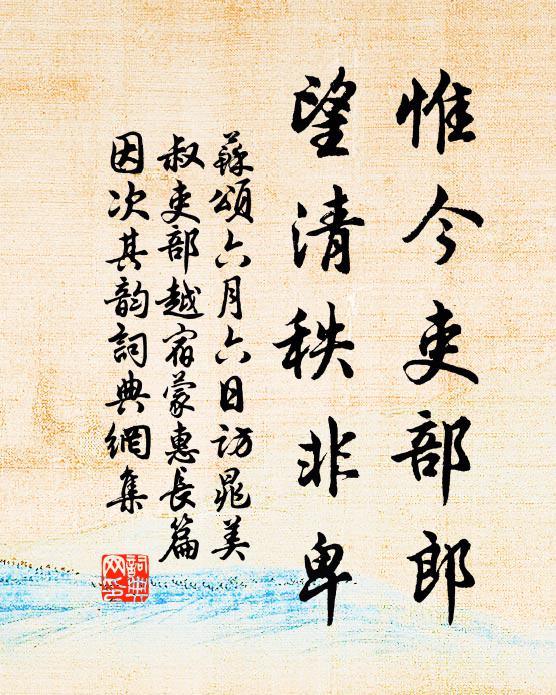 惟今吏部郎
望清秩非卑
蘇頌六月六日訪晁美
叔吏部越宿蒙惠長篇
因次其韵詞典網集
詞典网印